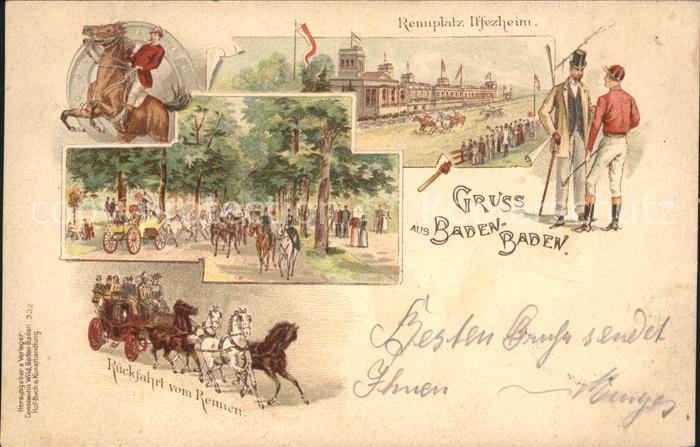 Rennplatz Iffezheim.
GRUSS
AUS BADEN-
BADEN.
Rückfahrt vom Rennen.
Herausgeber u Verleger
Constantin Wild, Baden-Baden 332
Hof-Buch & Kunsthandlung
Besten Gruß sendet
Ihnen